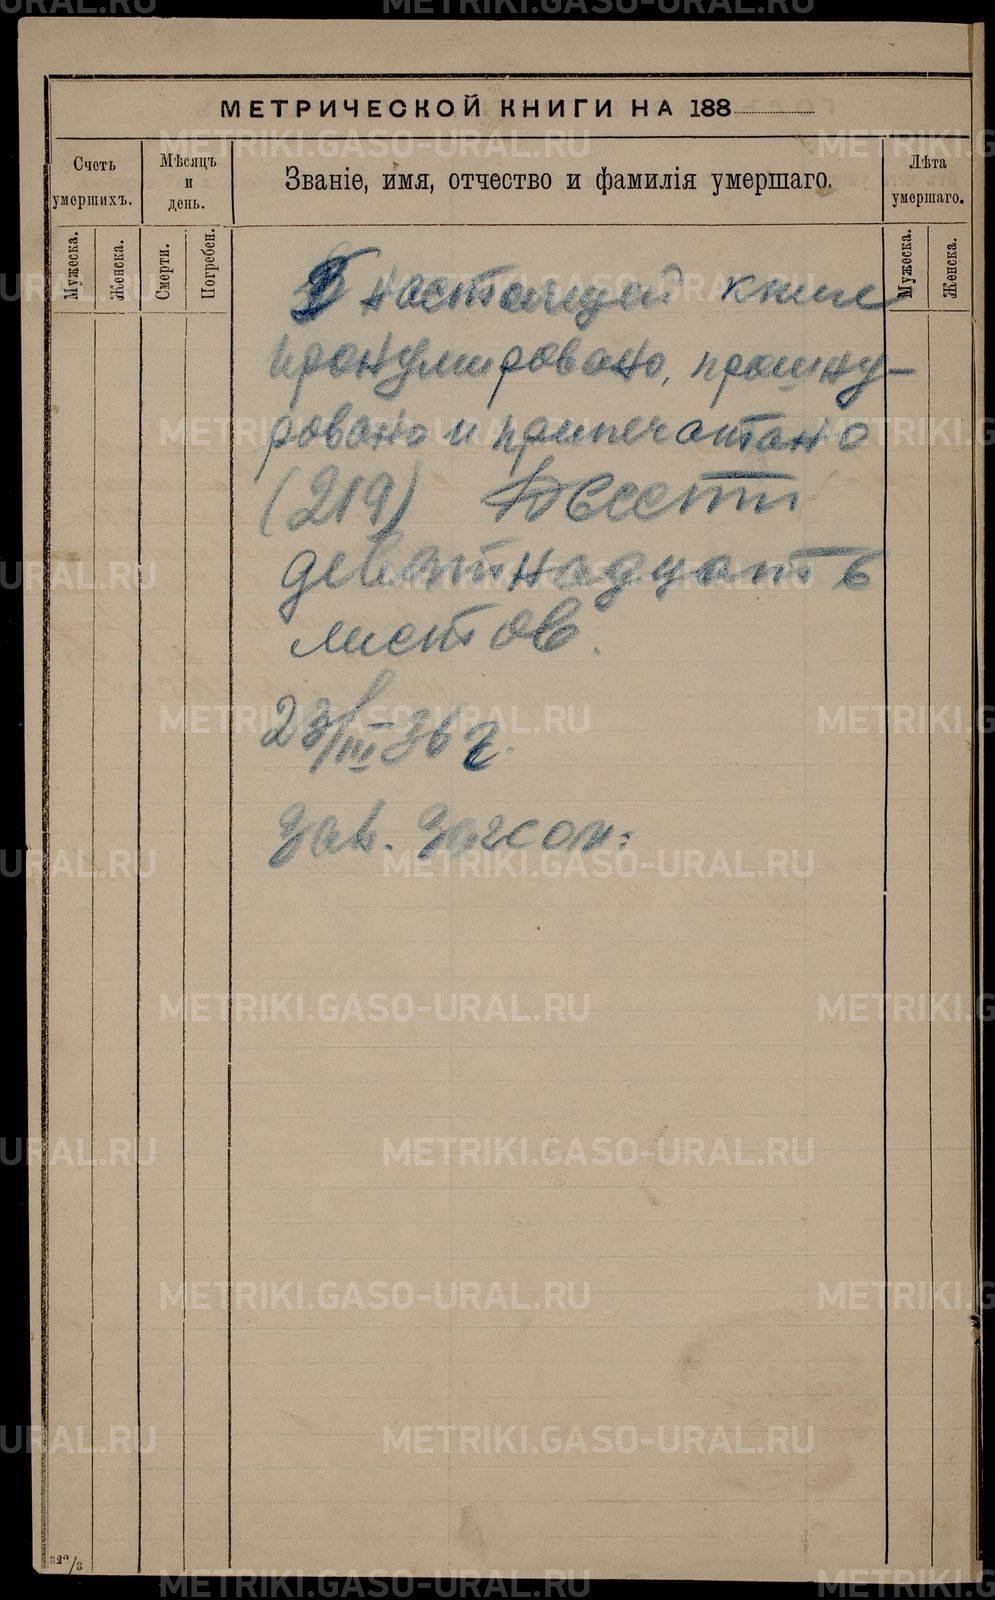 МЕТРИЧЕСКОЙ КНИГИ НА 188
Счетъ умершихъ.
Мѣсяцъ и день.
Званіе, имя, отчество и фамилія умершаго.
Лѣта умершаго.
Мужеска.
Женска.
Смерти.
Погребен.
Мужеска.
Женска.
В настоящей книге
пронумировано, прошну-
ровано и припечатано
(219) Двести
девятнадцать
листов.
23/III-36 г.
Зав. Загсом:
32º/3
METRIKI.GASO-URAL.RU